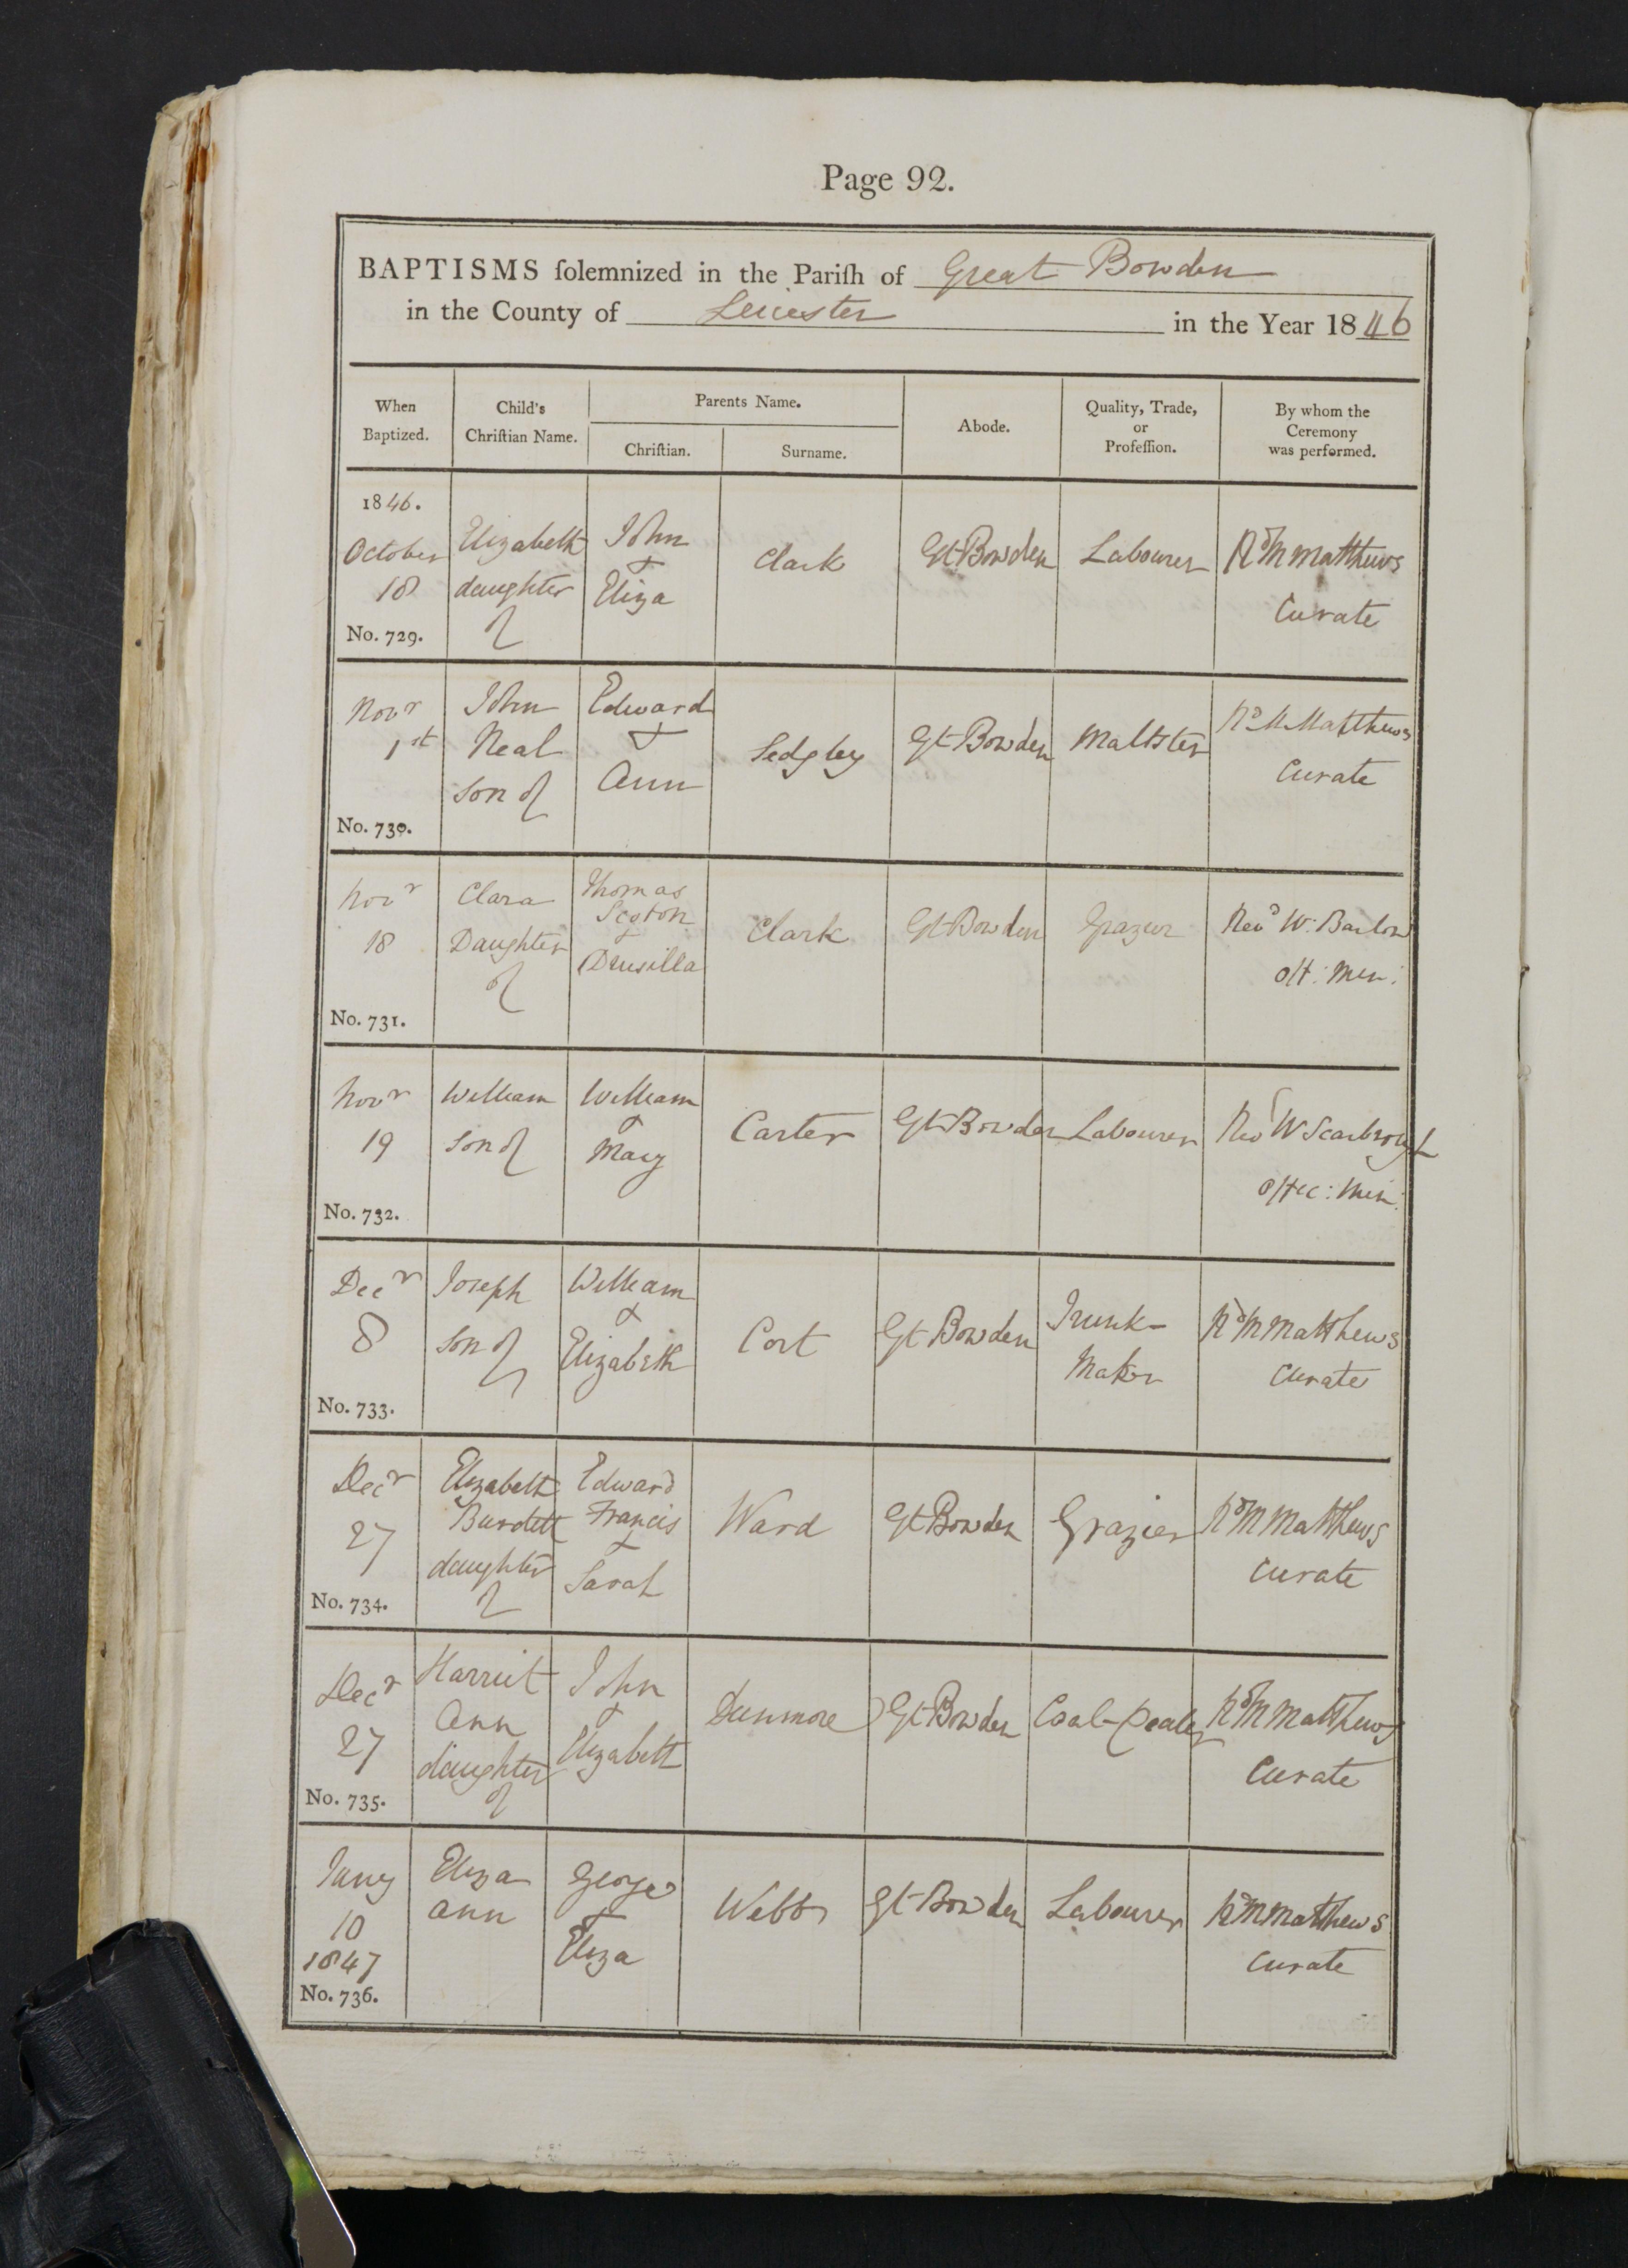 Page 92.
BAPTISMS ſolemnized in the Pariſh of Great Bowden
in the County of Leicester in the Year 1846
When Baptized.
Child's Chriſtian Name.
Parents Name.
Chriſtian.
Surname.
Abode.
Quality, Trade, or Profeſſion.
By whom the Ceremony was performed.
1846.
October
18
No. 729.
Elizabeth
daughter
of
John
&
Eliza
Clark
Gt Bowden
Labourer
Rd M Matthews
Curate
Novr
1st
No. 730.
John
Neal
son of
Edward
&
Ann
Sedgley
Gt Bowden
Maltster
Rd M Matthews
Curate
Novr
18
No. 731.
Clara
Daughter
of
Thomas
Seaton
&
Drusilla
Clark
Gt Bowden
Grazier
Revd W. Barlow
Off: Min:
Novr
19
No. 732.
William
son of
William
&
Mary
Carter
Gt Bowden
Labourer
Rev W Scarbrough
Offic: Min:
Decr
8
No. 733.
Joseph
son of
William
&
Elizabeth
Cort
Gt Bowden
Trunk-
Maker
Rd M Matthews
Curate
Decr
27
No. 734.
Elizabeth
Burdett
daughter
of
Edward
Francis
&
Sarah
Ward
Gt Bowden
Grazier
Rd M Matthews
Curate
Decr
27
No. 735.
Harriet
Ann
daughter
of
John
&
Elizabeth
Dunmore
Gt Bowden
Coal-Dealer
Rd M Matthews
Curate
Jany
10
1847
No. 736.
Eliza
Ann
George
&
Eliza
Webb
Gt Bowden
Labourer
Rd M Matthews
Curate